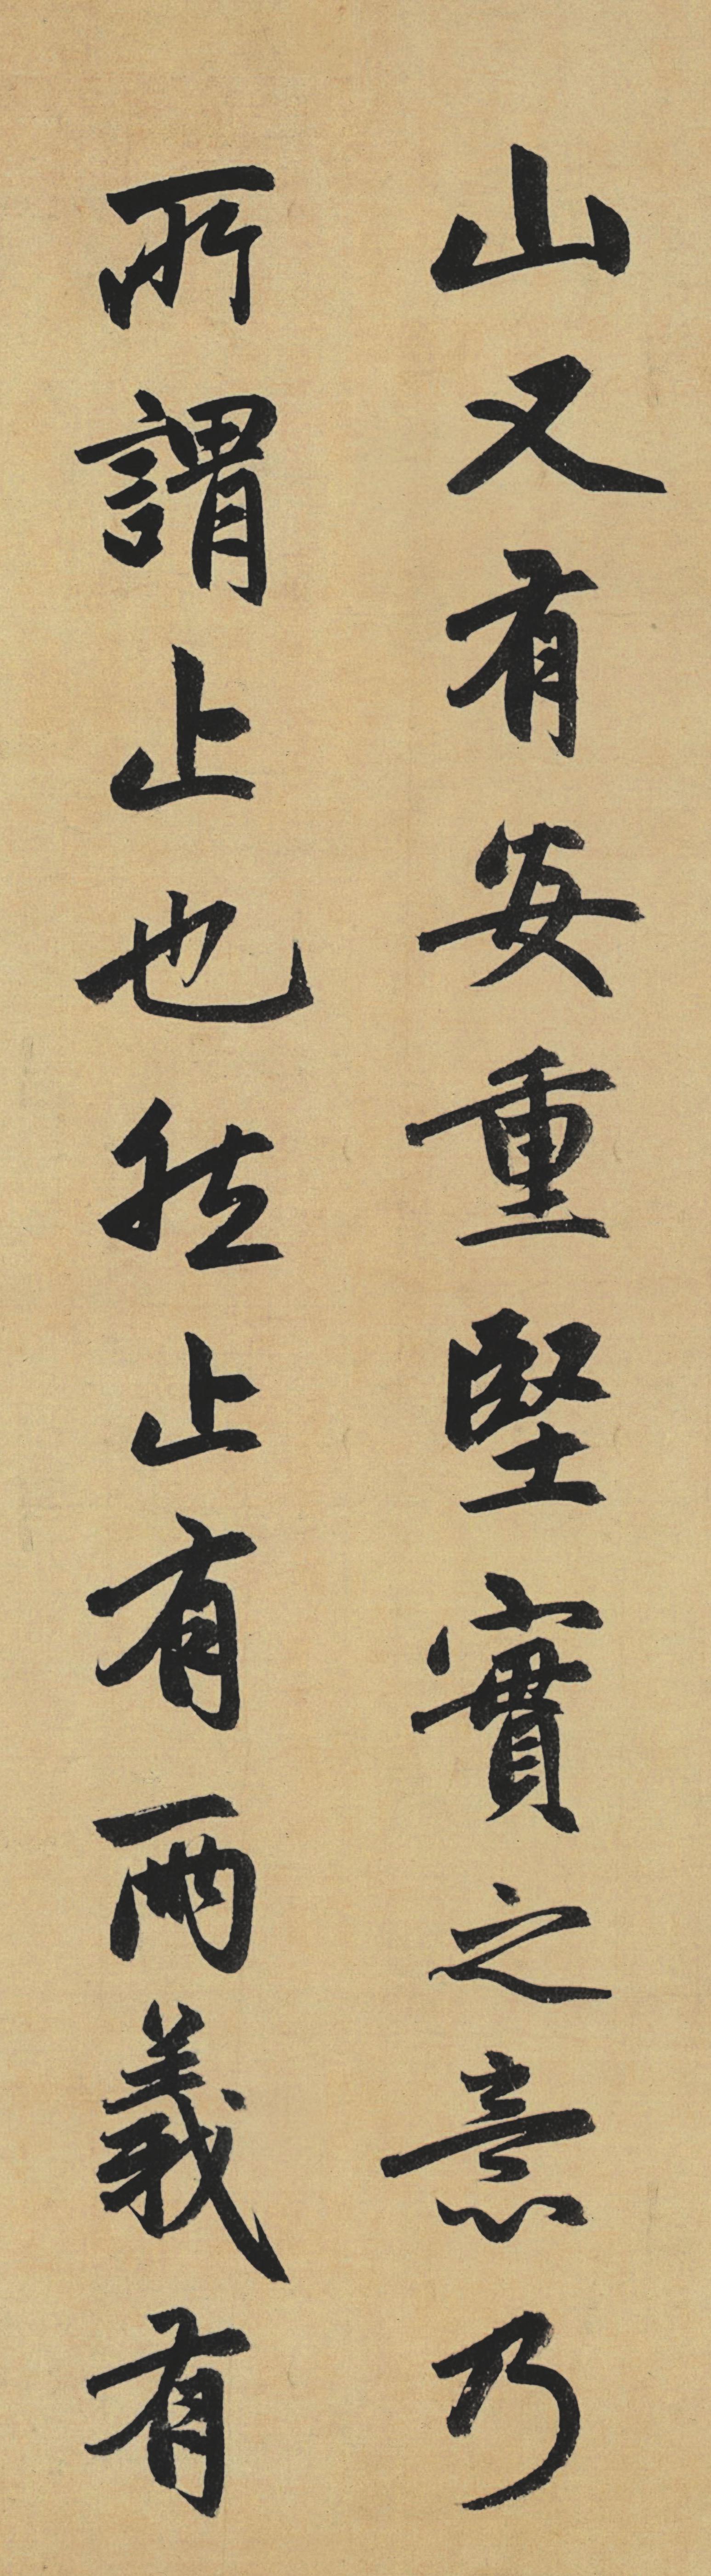 山又有安重堅實之意乃
所謂止也然止有兩義有